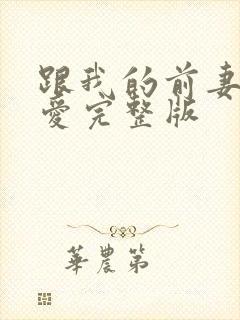 跟我的前妻
愛完整版
華農第